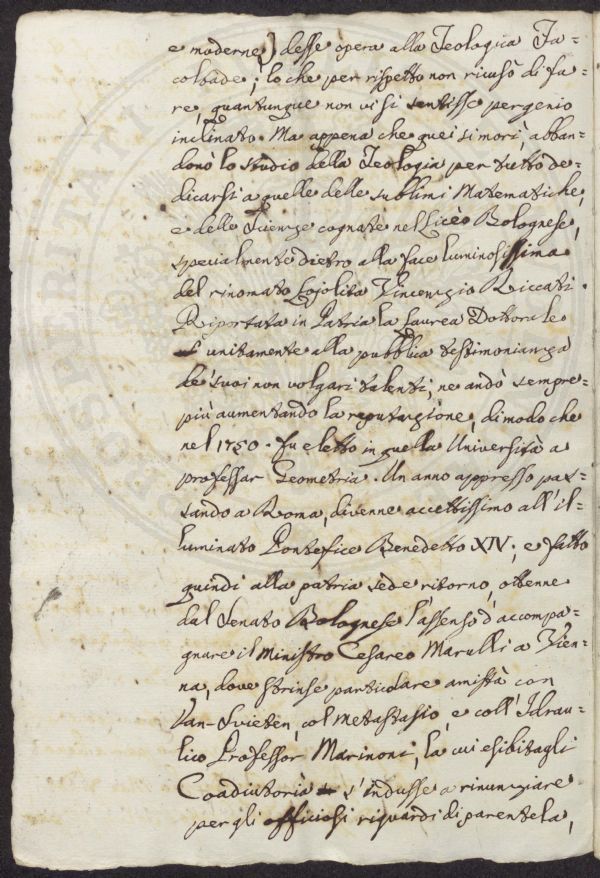 e moderne) desse opera alla Teologica Fa=
coltade; lo che per rispetto non ricusò di fa=
re, quantunque non vi si sentisse per genio
inclinato. Ma appena che quei si morì, abban=
donò lo studio della Teologia per tutto de=
dicarsi a quelle delle sublimi Matematiche,
e delle Scienze cognate nel Liceo Bolognese,
specialmente dietro alla face luminosissima
del rinomato Lojolita Vincenzio Riccati.
Riportata in Patria la Laurea Dottorale
unitamente alla pubblica testimonianza
de' suoi non volgari talenti, ne andò sempre
più aumentando la reputazione, di modo che
nel 1750. fu eletto in quella Università a
professar Geometria. Un anno appresso pas=
sando a Roma, divenne accettissimo all'il=
luminato Pontefice Benedetto XIV; e fatto
quindi alla patria sede ritorno, ottenne
dal Senato Bolognese l'assenso d'accompa=
gnare il Ministro Cesareo Marulli a Vien=
na, dove strinse particolare amistà con
Van-Svieten, col Metastasio, e coll'Idrau=
lico Professor Marinoni, la cui esibitagli
Coadiutoria s'indusse a rinunziare
per gli officiosi riguardi di parentela,